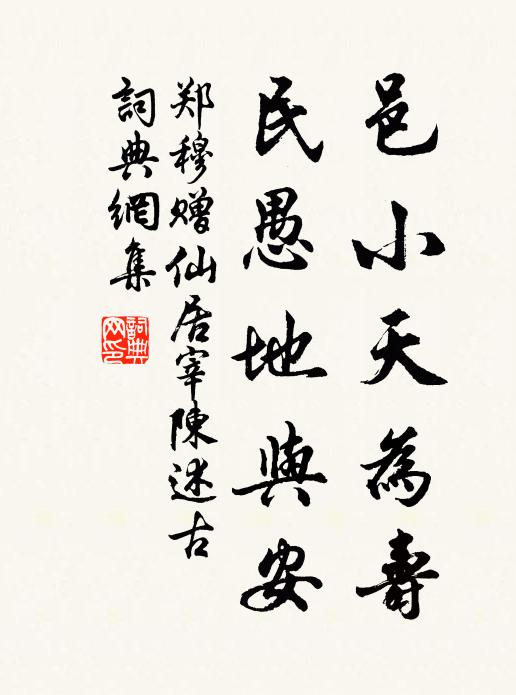 邑小天為壽
民愚地與安
郑穆赠仙居宰陳述古
詞典網集
詞典网印